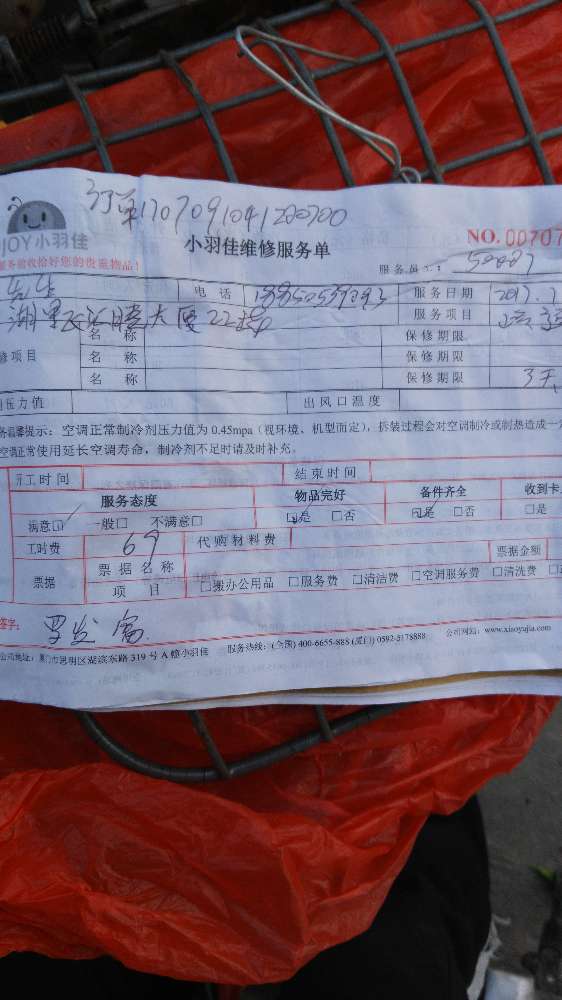 订单1707091041200700
JOY小羽佳
小羽佳维修服务单
NO. 00707
务前请收拾好您的贵重物品!
服务员工: 50007
先生 电话 服务日期 2017.7
湖里区 大厦22楼 服务项目
修项目 名称 保修期限
名称 保修期限
名称 保修期限 3天
压力值 出风口温度
务温馨提示:空调正常制冷剂压力值为0.45mpa(视环境、机型而定),拆装过程会对空调制冷或制热造成一
空调正常使用延长空调寿命,制冷剂不足时请及时补充。
开工时间 结束时间
服务态度 物品完好 备件齐全 收到卡
满意☑ 一般□ 不满意□ ☑是 □否 ☑是 □否 □是
工时费 69 代购材料费
票据 票据名称 票据金额
项目 □搬办公用品 □服务费 □清洁费 □空调服务费 □清洗费
签字: 罗发富
公司地址:厦门市思明区湖滨东路319号A幢小羽佳 服务热线:(全国)400-6655-888 (厦门)0592-5178888 公司网站:www.xiaoyujia.com